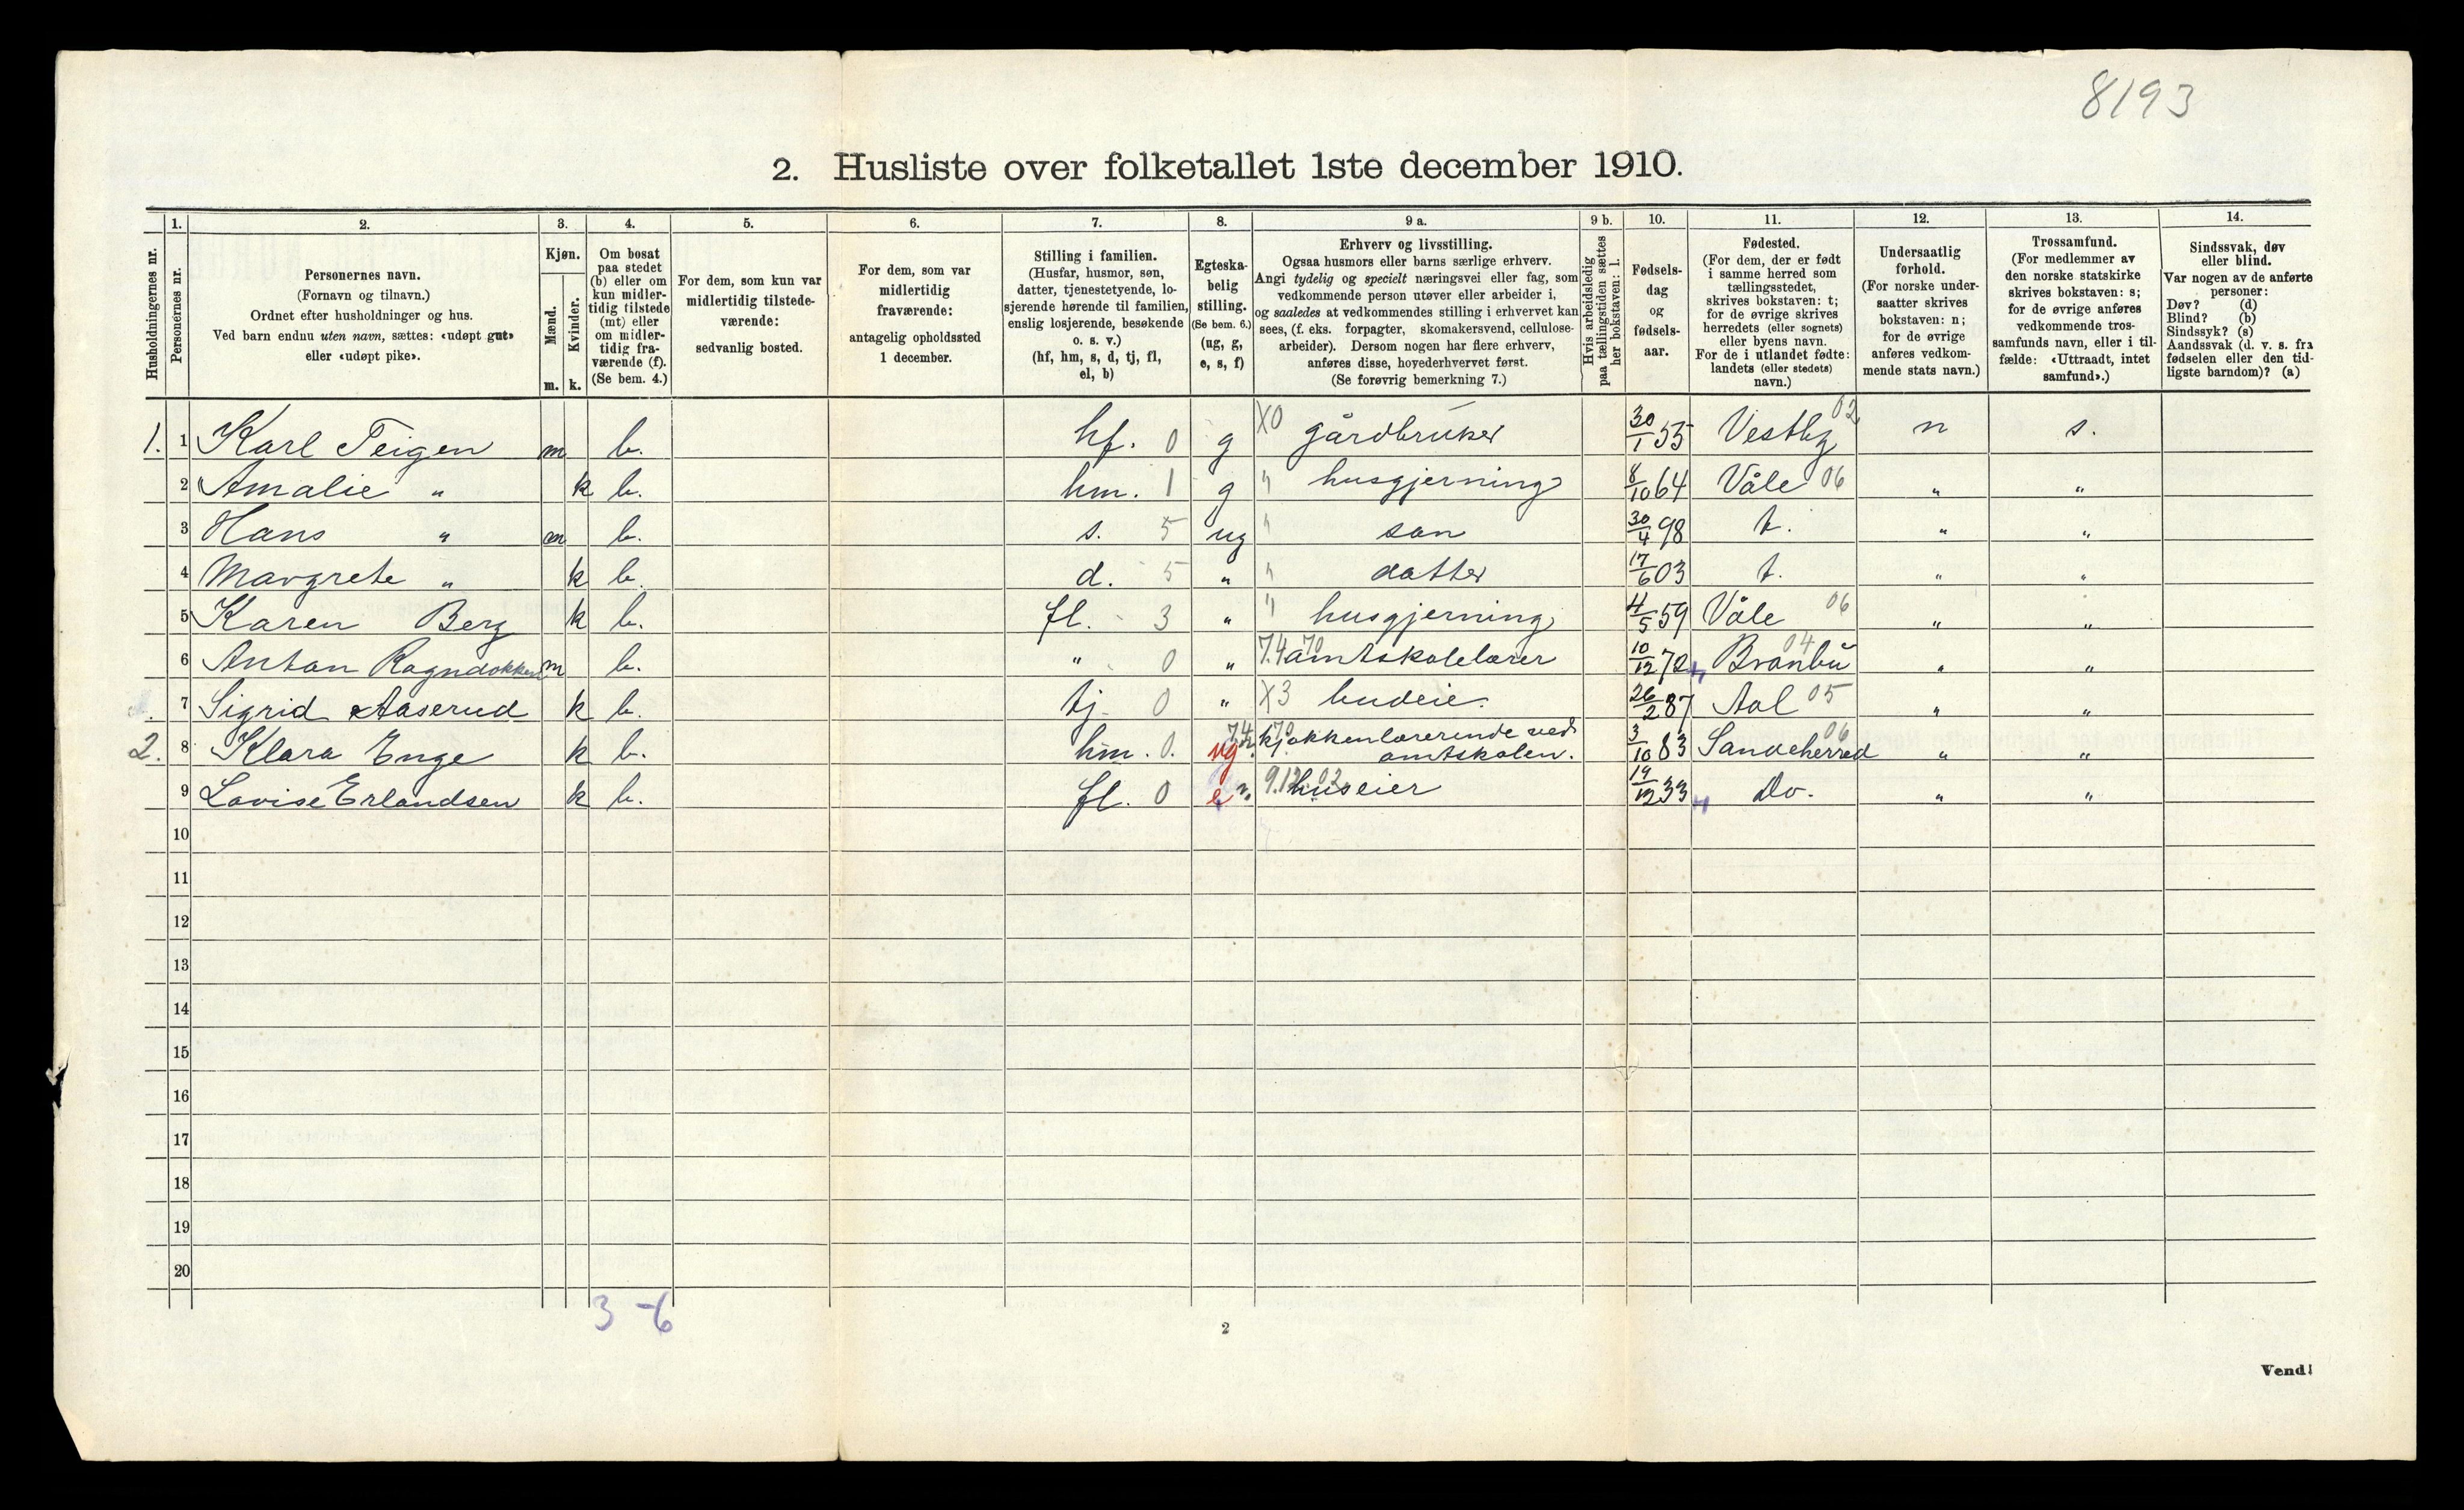 8193
2. Husliste over folketallet 1ste december 1910.
1. 2. 3. 4. 5. 6. 7. 8. 9 a. 9 b. 10. 11. 12. 13. 14.
Husholdningernes nr.
Personernes nr.
Personernes navn.
(Fornavn og tilnavn.)
Ordnet efter husholdninger og hus.
Ved barn endnu uten navn, sættes: «udøpt gut»
eller «udøpt pike».
Kjøn.
Mænd.
Kvinder.
m. k.
Om bosat
paa stedet
(b) eller om
kun midler-
tidig tilstede
(mt) eller
om midler-
tidig fra-
værende (f).
(Se bem. 4.)
For dem, som kun var
midlertidig tilstede-
værende:
sedvanlig bosted.
For dem, som var
midlertidig
fraværende:
antagelig opholdssted
1 december.
Stilling i familien.
(Husfar, husmor, søn,
datter, tjenestetyende, lo-
sjerende hørende til familien,
enslig losjerende, besøkende
o. s. v.)
(hf, hm, s, d, tj, fl,
el, b)
Egteska-
belig
stilling.
(Se bem. 6.)
(ug, g,
e, s, f)
Erhverv og livsstilling.
Ogsaa husmors eller barns særlige erhverv.
Angi tydelig og specielt næringsvei eller fag, som
vedkommende person utøver eller arbeider i,
og saaledes at vedkommendes stilling i erhvervet kan
sees, (f. eks. forpagter, skomakersvend, cellulose-
arbeider). Dersom nogen har flere erhverv,
anføres disse, hovederhvervet først.
(Se forøvrig bemerkning 7.)
Hvis arbeidsledig
paa tællingstiden sættes
her bokstaven: l.
Fødsels-
dag
og
fødsels-
aar.
Fødested.
(For dem, der er født
i samme herred som
tællingsstedet,
skrives bokstaven: t;
for de øvrige skrives
herredets (eller sognets)
eller byens navn.
For de i utlandet fødte:
landets (eller stedets)
navn.)
Undersaatlig
forhold.
(For norske under-
saatter skrives
bokstaven: n;
for de øvrige
anføres vedkom-
mende stats navn.)
Trossamfund.
(For medlemmer av
den norske statskirke
skrives bokstaven: s;
for de øvrige anføres
vedkommende tros-
samfunds navn, eller i til-
fælde: «Uttraadt, intet
samfund».)
Sindssvak, døv
eller blind.
Var nogen av de anførte
personer:
Døv? (d)
Blind? (b)
Sindssyk? (s)
Aandssvak (d. v. s. fra
fødselen eller den tid-
ligste barndom)? (a)
1. 1 Karl Teigen m b. hf. 0 g X0 gårdbruker 30/1 55 Vestby 02 n s.
2 Amalie " k b. hm. 1 g " husgjerning 8/10 64 Våle 06 " "
3 Hans " m b. s. 5 ug " søn 30/4 98 t. " "
4 Margrete " k b. d. 5 " " datter 17/6 03 t. " "
5 Karen Berg k b. fl. 3 " " husgjerning 4/5 59 Våle 06 " "
6 Anton Rogndokken m b. " 0 " 7.4 70 amtskolelærer 10/12 72 Branbu 04 " "
7 Sigrid Aaserud k b. tj. 0 " X3 budeie. 26/2 87 Aal 05 " "
2. 8 Klara Enge k b. hm. 0. ug 74 70 kjøkkenlærerinde ved
amtskolen. 3/10 83 Sandeherred 06 " "
9 Lovise Erlandsen k b. fl. 0 e 9.12 02 huseier 19/12 33 Do. " "
10
11
12
13
14
15
16
17
18
19
20
3 - 6
2
Vend!